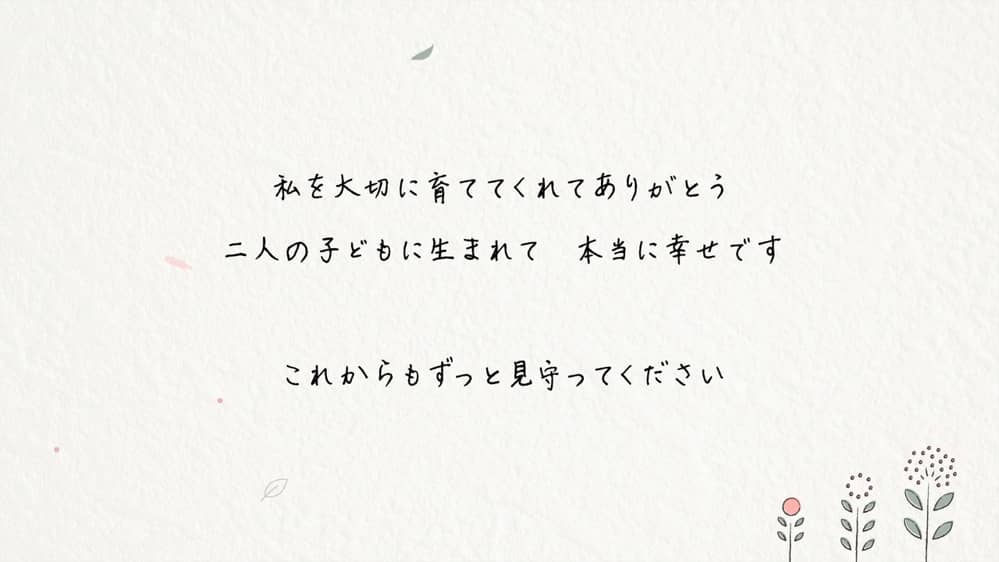 私を大切に育ててくれてありがとう
二人の子どもに生まれて　本当に幸せです
これからもずっと見守ってください